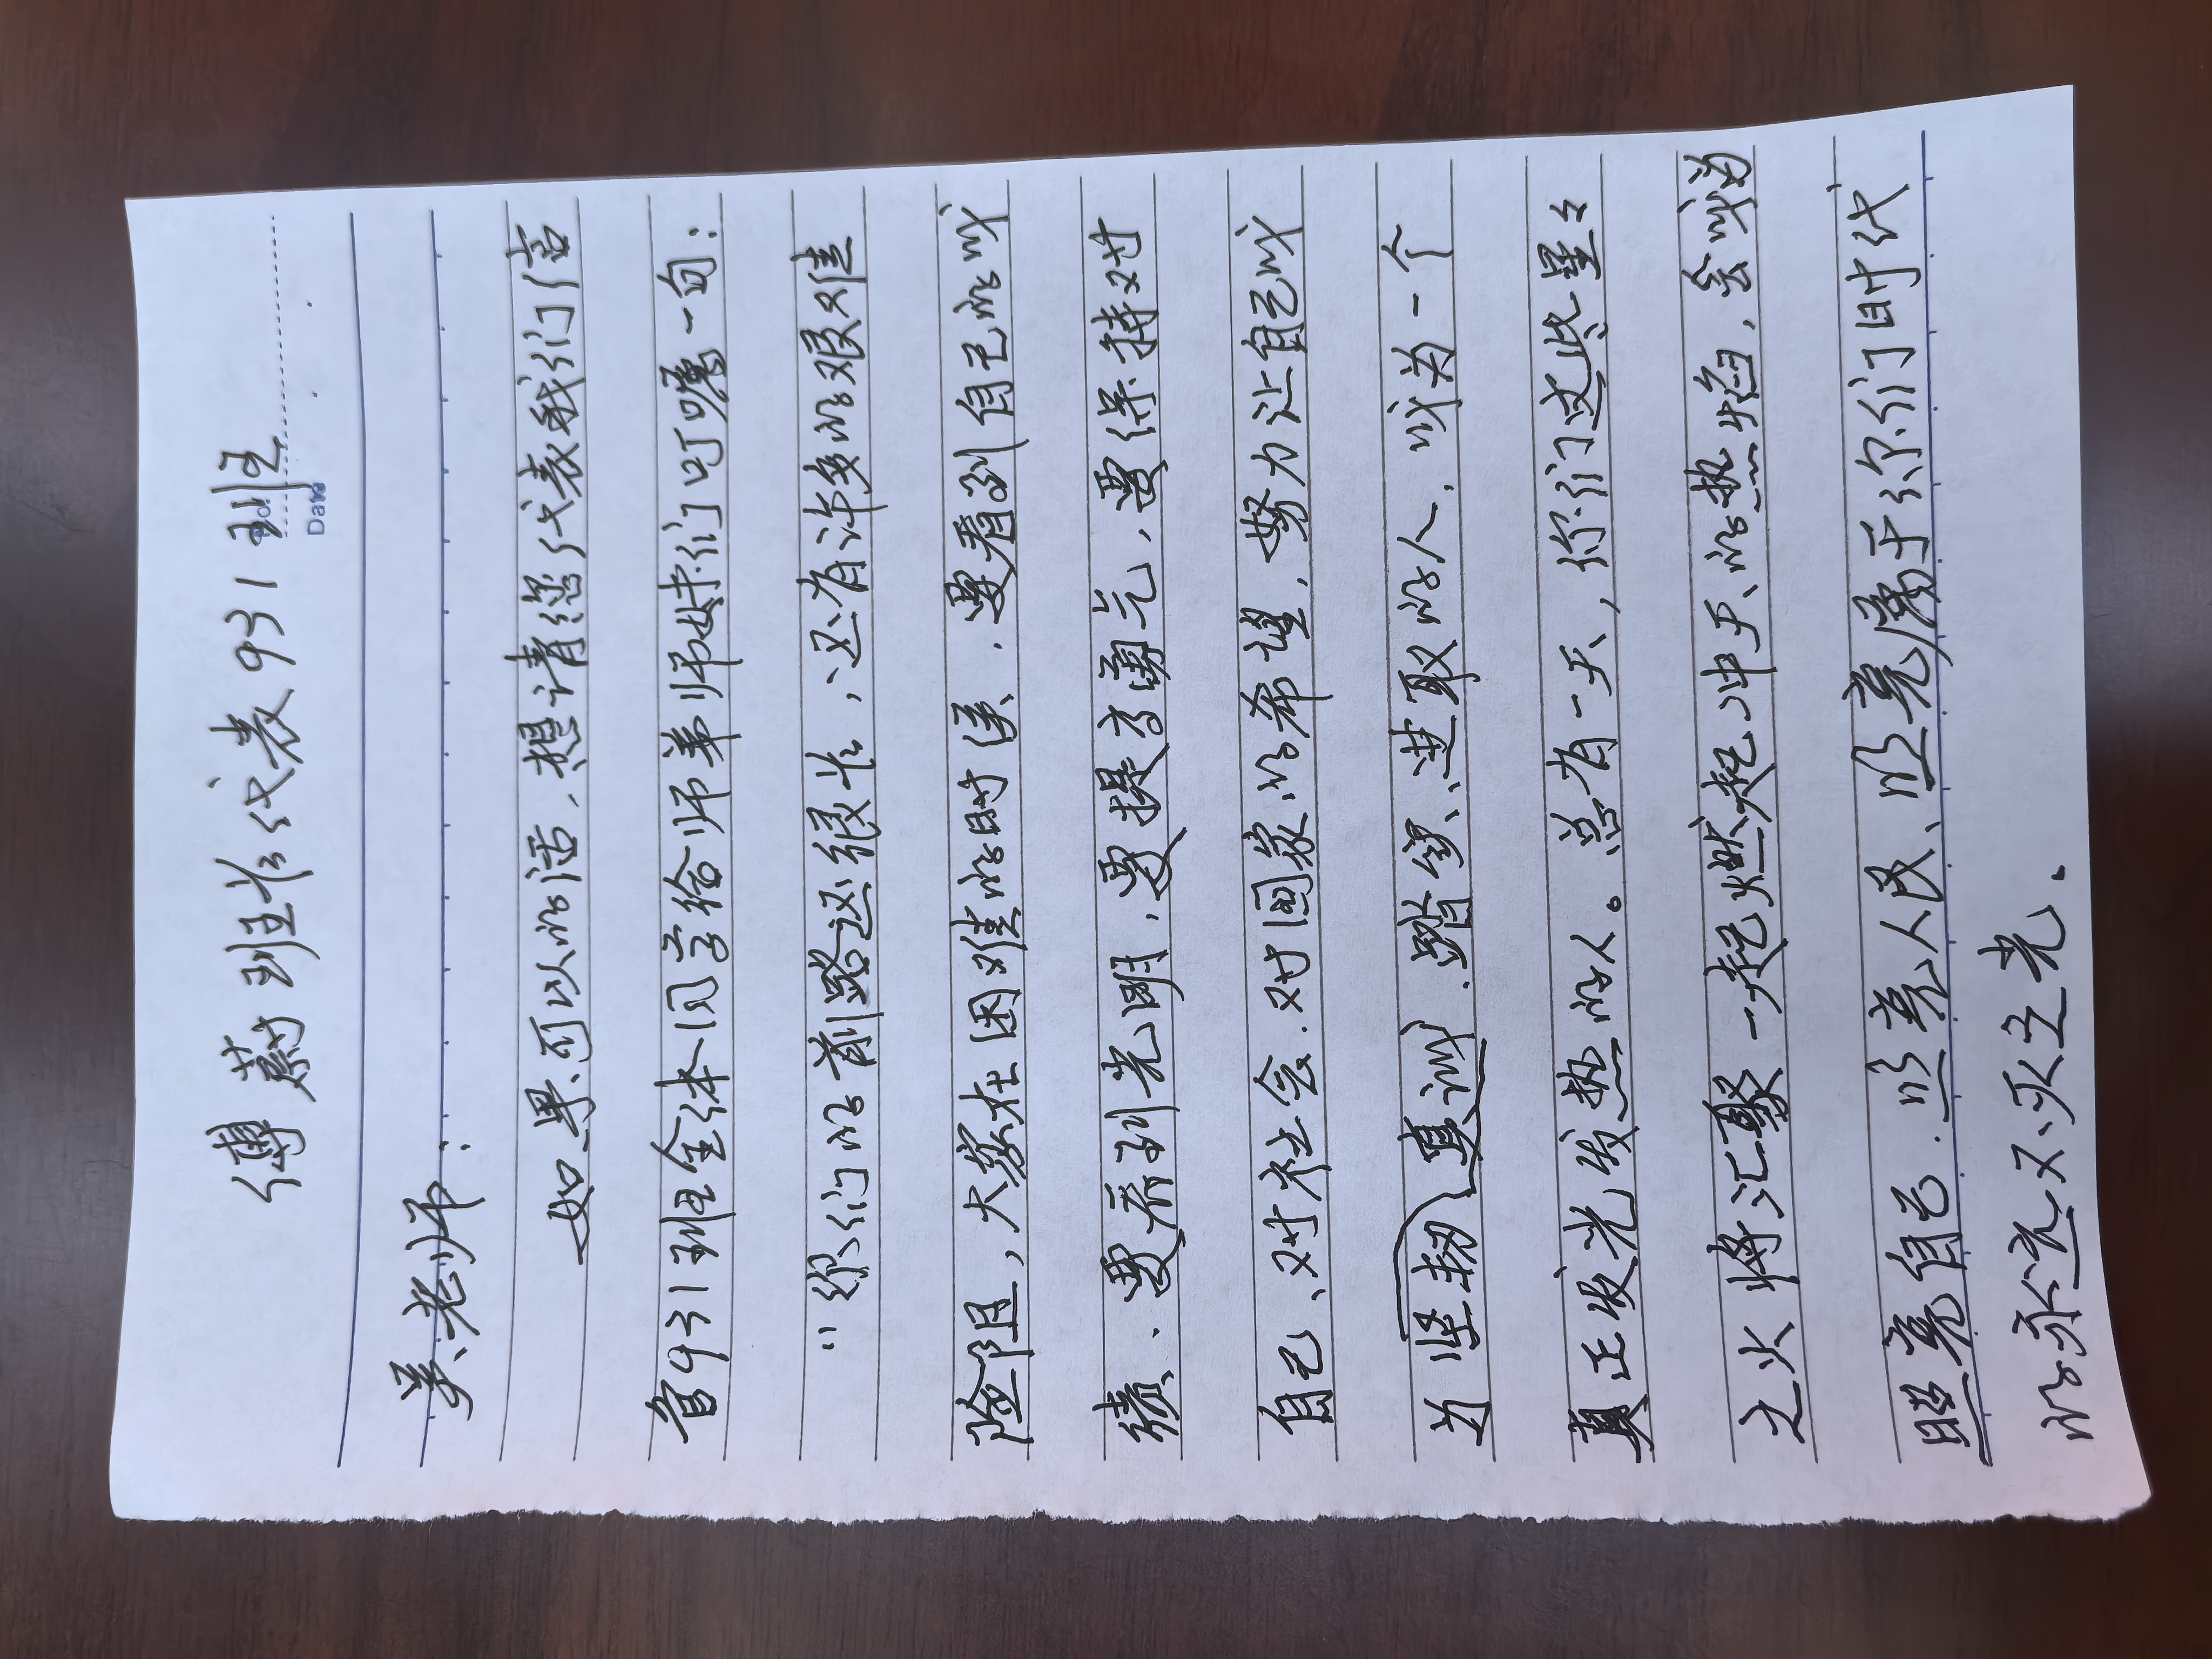 傅蔚班长代表931班
Date
吴老师:
如果可以的话,想请您代表我们信
管931班全体同学给师弟师妹们叮嘱一句:
"你们的前路还很长,还有许多的艰难
险阻,大家在困难的时候,要看到自己的成
绩、要看到光明,要提高勇气,要保持对
自己、对社会、对国家的希望,努力让自己成
为坚韧、真诚、踏实、进取的人,成为一个
真正发光发热的人。总有一天,你们这些星々
之火将汇聚一起燃起冲天的热焰,会成为
照亮自己、照亮人民、照亮属于你们时代
的永远不灭之光.